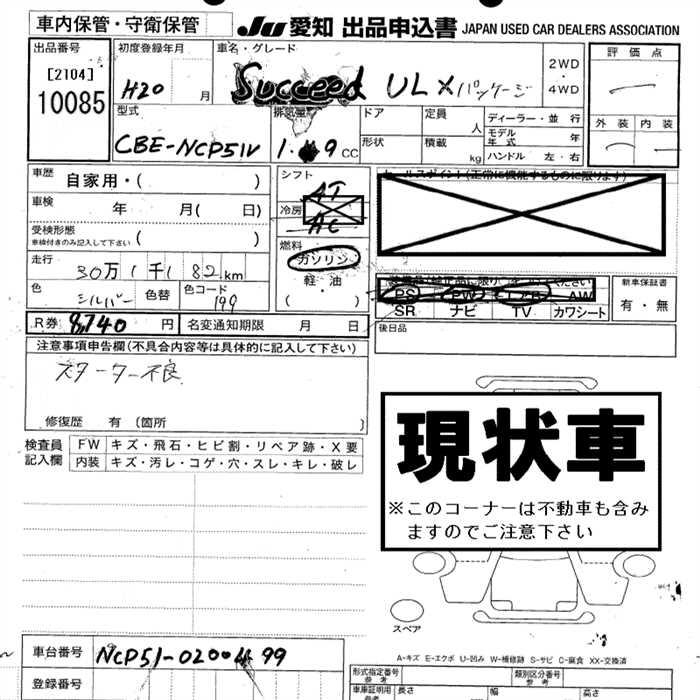 車内保管・守衛保管 JU 愛知 出品申込書 JAPAN USED CAR DEALERS ASSOCIATION
出品番号 初度登録年月 車名・グレード 評価点
[2104] H20 月 Succeed UL Xパッケージ 2WD・4WD
10085
型式 排気量 ドア 定員 人 ディーラー・並行
CBE-NCP51V 1. 9 CC 形状 積載 kg モデル年式 年
ハンドル 左・右
外装 内装
車歴 自家用・( ) シフト AT
車検 年 月( 日) 冷房 AC
セールスポイント(正常に機能するものに限ります)
受検形態 ( )
車検付きのみ記入して下さい
燃料 ガソリン
走行 30万1千182km 軽・油
( )
色 シルバー 色替 色コード 199
PS PW エアB AW
SR ナビ TV カワシート
新車保証書
有・無
R券 8,740 円 名変通知期限 月 日
後日品
注意事項申告欄(不具合内容等は具体的に記入して下さい)
スターター不良
修復歴 有(箇所 )
検査員記入欄 FW キズ・飛石・ヒビ割・リペア跡・X要
内装 キズ・汚レ・コゲ・穴・スレ・キレ・破レ
現状車
※このコーナーは不動車も含み
ますのでご注意下さい
スペア
A-キズ E-エクボ U-凹み W-補修跡 S-サビ C-腐食 XX-交換済
車台番号 NCP51-0200499
登録番号
形式指定番号 参考 類別区分番号 参考
車庫証明用 参考 長さ 幅 高さ